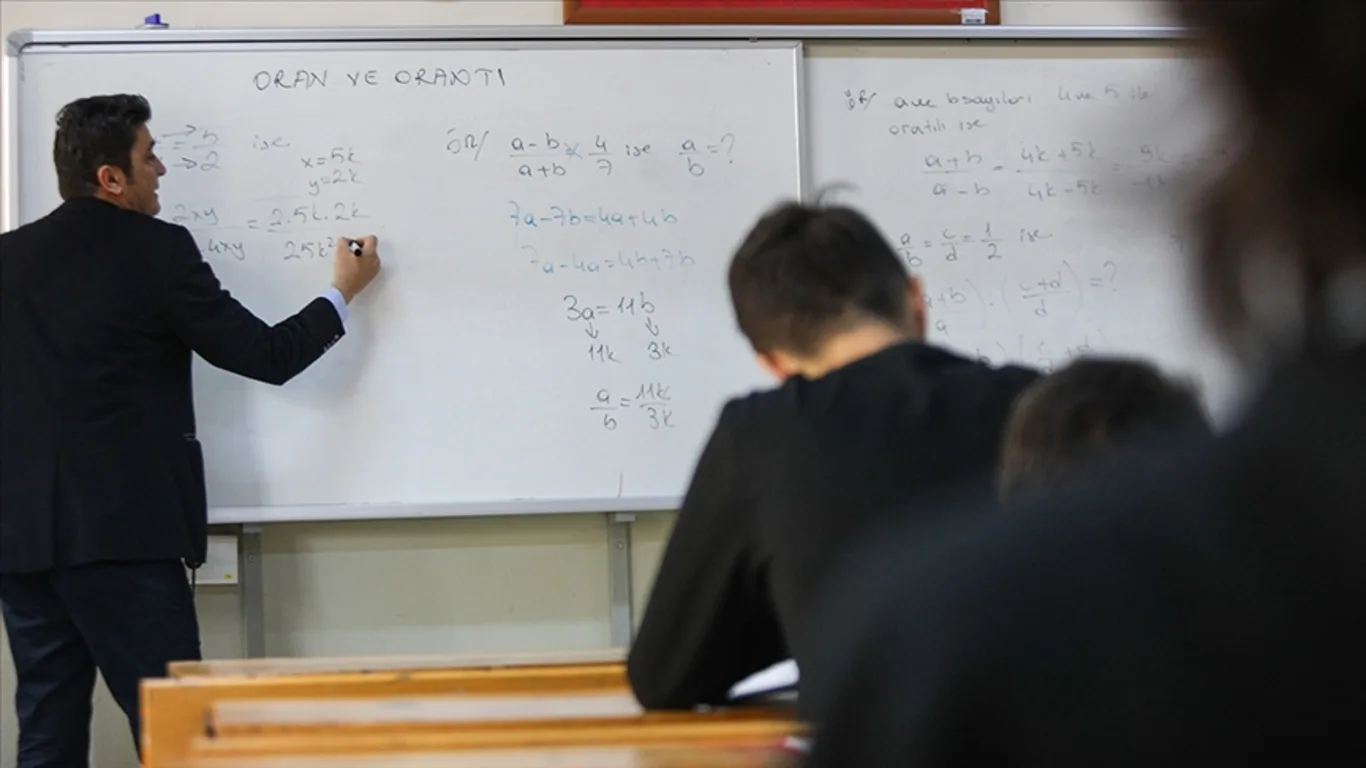 ORAN VE ORANTI
→ 5
= → 2 ise
x=5k
y=2k
2xy = 2.5k.2k
4xy 25k²
ÖR/ a-b / a+b = 4/7 ise a/b = ?
7a-7b=4a+4b
7a-4a=4b+7b
3a=11b
↓ ↓
11k 3k
a/b = 11k/3k
ÖR/ a ve b sayıları 4 ve 5 ile
orantılı ise
a+b / a-b = 4k+5k / 4k-5k = 9k
a/b = c/d = 1/2 ise
a+b / a) . (c+d / d) = ?